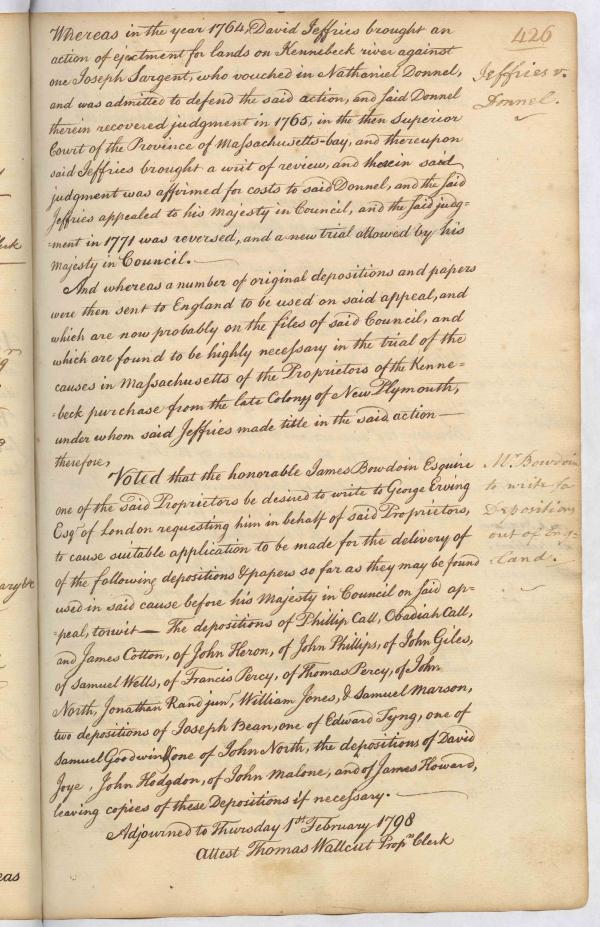 426
Whereas in the year 1764, David Jeffries brought an
action of ejectment for lands on Kennebeck river against
one Joseph Sargent, who vouched in Nathaniel Donnel,
and was admitted to defend the said action, and said Donnel
therein recovered judgment in 1765, in the then Superior
Court of the Province of Massachusetts-bay, and thereupon
said Jeffries brought a writ of review, and therein said
judgment was affirmed for costs to said Donnel, and the said
Jeffries appealed to his Majesty in Council, and the said judg=
=ment in 1771 was reversed, and a new trial allowed by his
Majesty in Council.
Jeffries v.
Donnel.
And whereas a number of original depositions and papers
were then sent to England to be used on said appeal, and
which are now probably on the files of said Council, and
which are found to be highly necessary in the trial of the
causes in Massachusetts of the Proprietors of the Kenne=
=beck purchase from the late Colony of New Plymouth,
under whom said Jeffries made title in the said action —
therefore,
Voted that the honorable James Bowdoin Esquire
one of the said Proprietors be desired to write to George Erving
Esqr. of London requesting him in behalf of said Proprietors,
to cause suitable application to be made for the delivery of
of the following depositions & papers so far as they may be found
used in said cause before his Majesty in Council on said ap=
=peal, towit — The depositions of Phillip Call, Obadiah Call,
and James Cotton, of John Heron, of John Phillips, of John Giles,
of Samuel Wells, of Francis Percy, of Thomas Percy, of John
North, Jonathan Rand junr, William Jones, & Samuel Marson,
two depositions of Joseph Bean, one of Edward Tyng, one of
Samuel Goodwin, one of John North, the depositions of David
Joye, John Hodgdon, of John Malone, and of James Howard,
leaving copies of these Depositions if necessary.
Mr. Bowdoin
to write for
Depositions
out of Eng=
=land.
Adjourned to Thursday 1st February 1798
Attest Thomas Wallcut Proprs Clerk